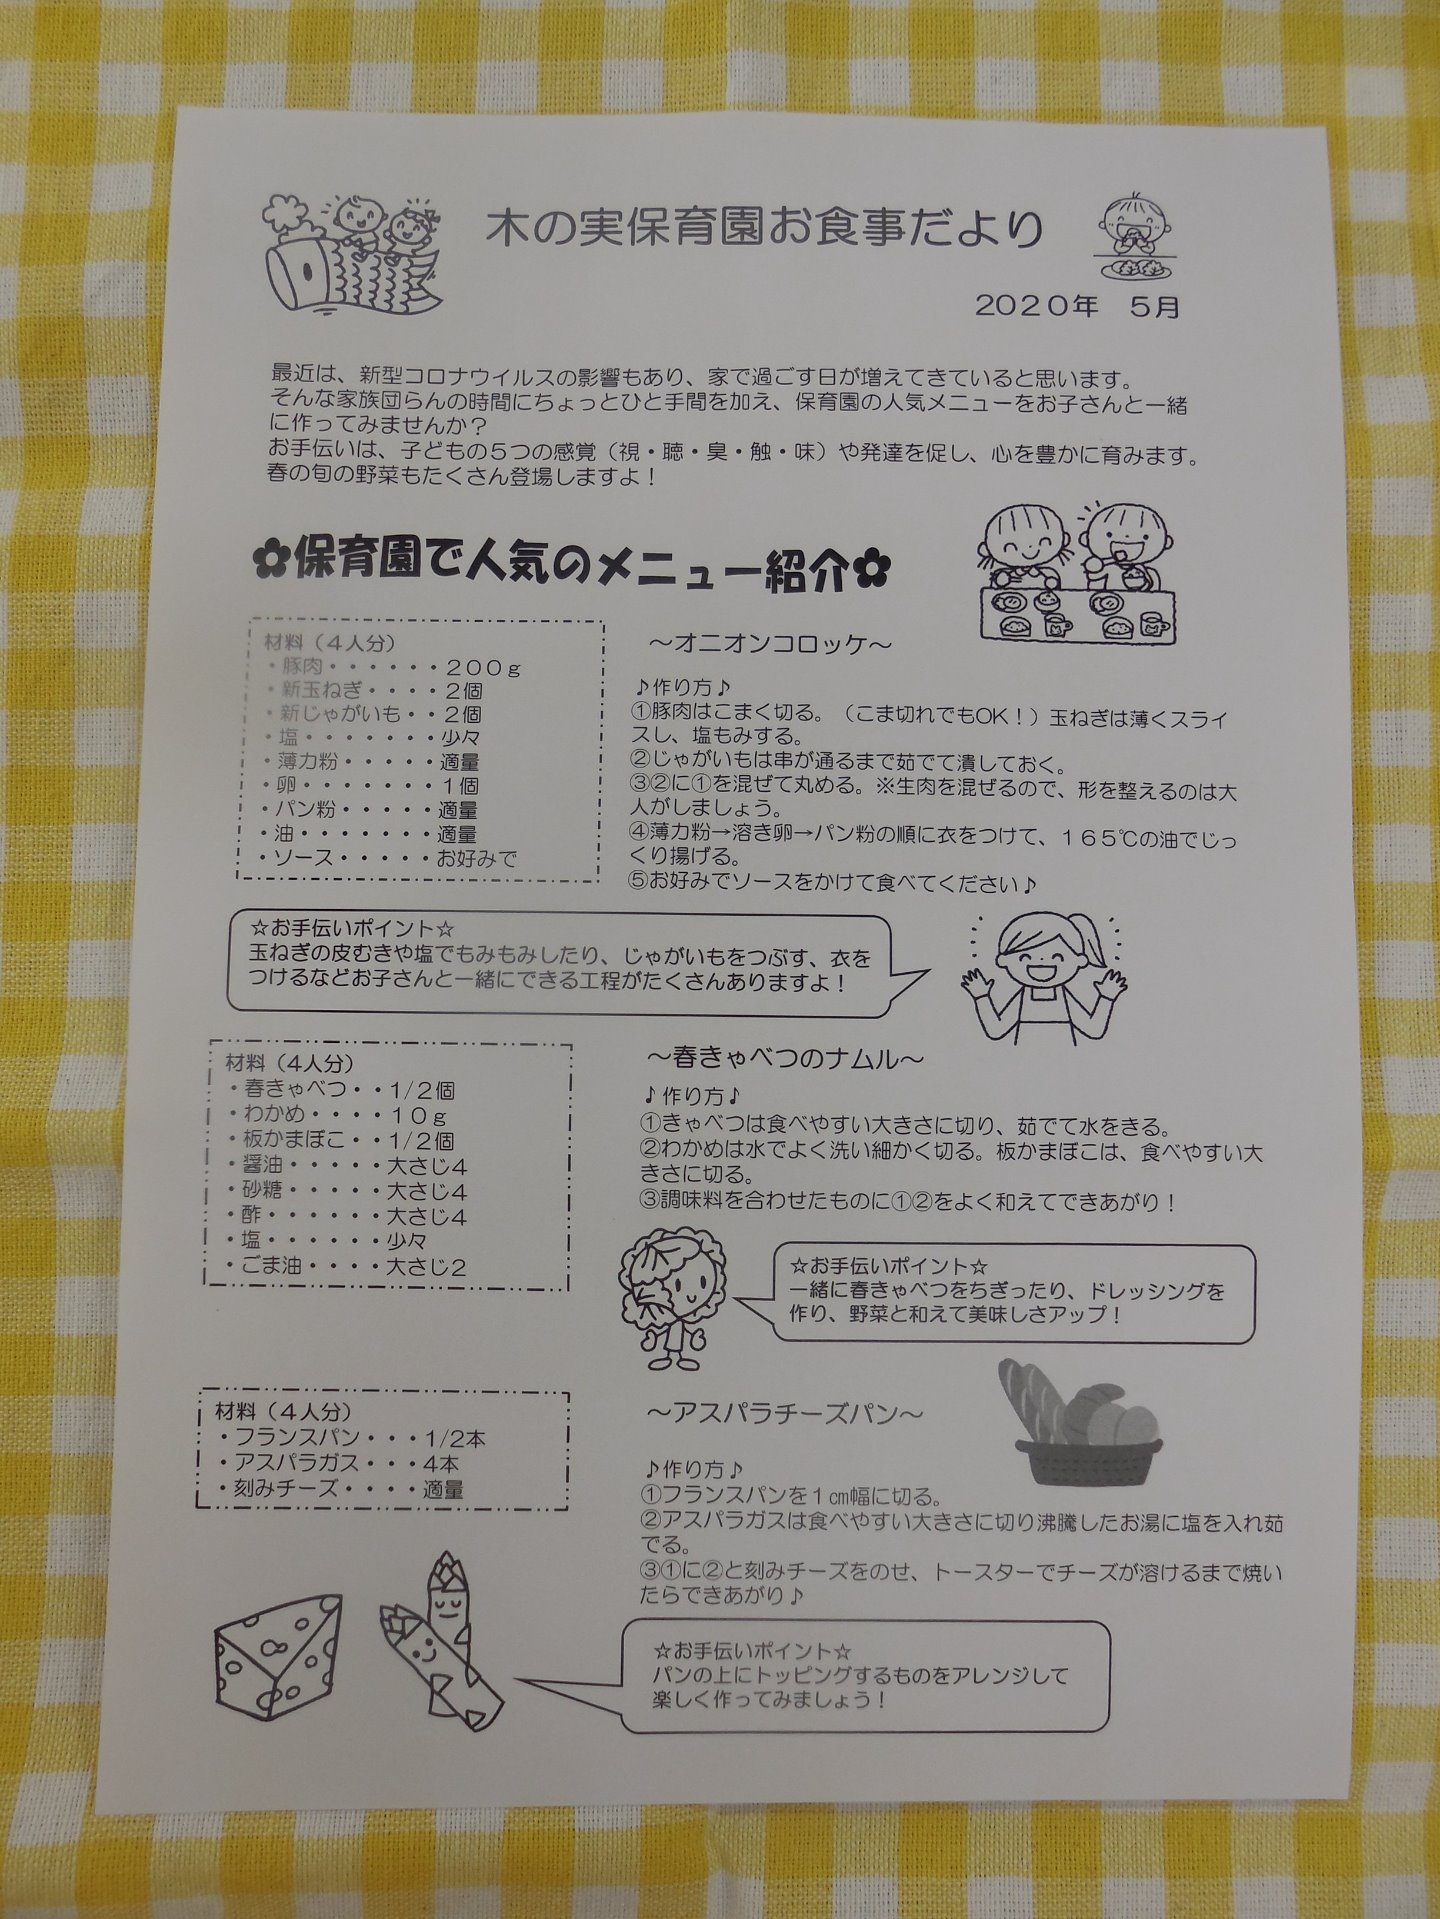 木の実保育園お食事だより
2020年 5月
最近は、新型コロナウイルスの影響もあり、家で過ごす日が増えてきていると思います。
そんな家族団らんの時間にちょっとひと手間を加え、保育園の人気メニューをお子さんと一緒
に作ってみませんか？
お手伝いは、子どもの５つの感覚（視・聴・臭・触・味）や発達を促し、心を豊かに育みます。
春の旬の野菜もたくさん登場しますよ！
✿保育園で人気のメニュー紹介✿
材料（４人分）
・豚肉・・・・・・２００ｇ
・新玉ねぎ・・・・２個
・新じゃがいも・・２個
・塩・・・・・・・少々
・薄力粉・・・・・適量
・卵・・・・・・・１個
・パン粉・・・・・適量
・油・・・・・・・適量
・ソース・・・・・お好みで
～オニオンコロッケ～
♪作り方♪
①豚肉はこまく切る。（こま切れでもOK！）玉ねぎは薄くスライ
スし、塩もみする。
②じゃがいもは串が通るまで茹でて潰しておく。
③②に①を混ぜて丸める。※生肉を混ぜるので、形を整えるのは大
人がしましょう。
④薄力粉→溶き卵→パン粉の順に衣をつけて、１６５℃の油でじっ
くり揚げる。
⑤お好みでソースをかけて食べてください♪
☆お手伝いポイント☆
玉ねぎの皮むきや塩でもみもみしたり、じゃがいもをつぶす、衣を
つけるなどお子さんと一緒にできる工程がたくさんありますよ！
材料（４人分）
・春きゃべつ・・1/２個
・わかめ・・・・１０ｇ
・板かまぼこ・・1/２個
・醤油・・・・・大さじ４
・砂糖・・・・・大さじ４
・酢・・・・・・大さじ４
・塩・・・・・・少々
・ごま油・・・・大さじ２
～春きゃべつのナムル～
♪作り方♪
①きゃべつは食べやすい大きさに切り、茹でて水をきる。
②わかめは水でよく洗い細かく切る。板かまぼこは、食べやすい大
きさに切る。
③調味料を合わせたものに①②をよく和えてできあがり！
☆お手伝いポイント☆
一緒に春きゃべつをちぎったり、ドレッシングを
作り、野菜と和えて美味しさアップ！
材料（４人分）
・フランスパン・・・1/2本
・アスパラガス・・・4本
・刻みチーズ・・・・適量
～アスパラチーズパン～
♪作り方♪
①フランスパンを１㎝幅に切る。
②アスパラガスは食べやすい大きさに切り沸騰したお湯に塩を入れ茹
でる。
③①に②と刻みチーズをのせ、トースターでチーズが溶けるまで焼い
たらできあがり♪
☆お手伝いポイント☆
パンの上にトッピングするものをアレンジして
楽しく作ってみましょう！